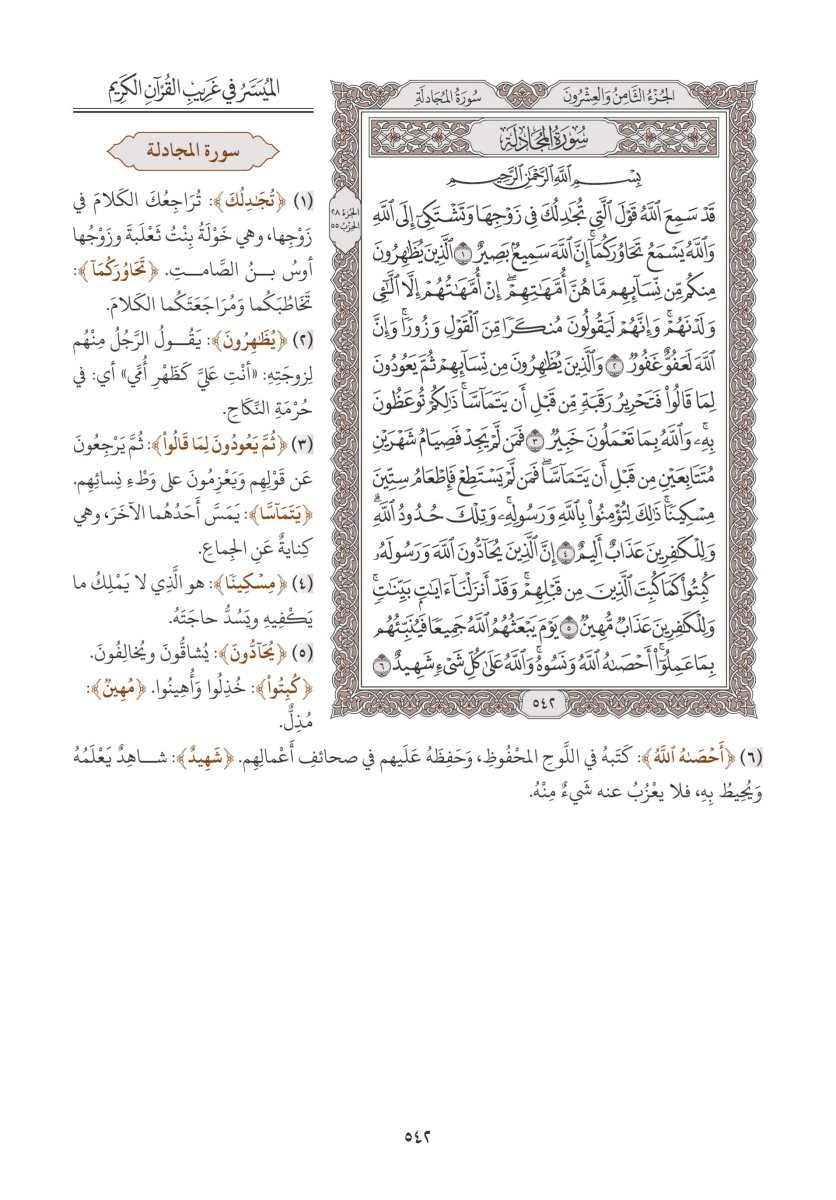 الميَسَّرُ في غَرِيبِ القُرْآنِ الكَرِيم
الجُزْءُ الثَّامِنُ وَالعِشْرُونَ
سُورَةُ المُجَادلَةِ
سُورَةُ المُجَادلَةِ
بِسْمِ ٱللَّهِ ٱلرَّحْمَٰنِ ٱلرَّحِيمِ
قَدْ سَمِعَ ٱللَّهُ قَوْلَ ٱلَّتِي تُجَٰدِلُكَ فِي زَوْجِهَا وَتَشْتَكِيٓ إِلَى ٱللَّهِ
وَٱللَّهُ يَسْمَعُ تَحَاوُرَكُمَآۚ إِنَّ ٱللَّهَ سَمِيعُۢ بَصِيرٌ ١ ٱلَّذِينَ يُظَٰهِرُونَ
مِنكُم مِّن نِّسَآئِهِم مَّا هُنَّ أُمَّهَٰتِهِمْۖ إِنْ أُمَّهَٰتُهُمْ إِلَّا ٱلَّٰٓـِٔي
وَلَدْنَهُمْۚ وَإِنَّهُمْ لَيَقُولُونَ مُنكَرًا مِّنَ ٱلْقَوْلِ وَزُورًاۚ وَإِنَّ
ٱللَّهَ لَعَفُوٌّ غَفُورٌ ٢ وَٱلَّذِينَ يُظَٰهِرُونَ مِن نِّسَآئِهِمْ ثُمَّ يَعُودُونَ
لِمَا قَالُواْ فَتَحْرِيرُ رَقَبَةٍ مِّن قَبْلِ أَن يَتَمَآسَّاۚ ذَٰلِكُمْ تُوعَظُونَ
بِهِۦۚ وَٱللَّهُ بِمَا تَعْمَلُونَ خَبِيرٌ ٣ فَمَن لَّمْ يَجِدْ فَصِيَامُ شَهْرَيْنِ
مُتَتَابِعَيْنِ مِن قَبْلِ أَن يَتَمَآسَّاۖ فَمَن لَّمْ يَسْتَطِعْ فَإِطْعَامُ سِتِّينَ
مِسْكِينًاۚ ذَٰلِكَ لِتُؤْمِنُواْ بِٱللَّهِ وَرَسُولِهِۦۚ وَتِلْكَ حُدُودُ ٱللَّهِۗ
وَلِلْكَٰفِرِينَ عَذَابٌ أَلِيمٌ ٤ إِنَّ ٱلَّذِينَ يُحَآدُّونَ ٱللَّهَ وَرَسُولَهُۥ
كُبِتُواْ كَمَا كُبِتَ ٱلَّذِينَ مِن قَبْلِهِمْۚ وَقَدْ أَنزَلْنَآ ءَايَٰتِۭ بَيِّنَٰتٍۚ
وَلِلْكَٰفِرِينَ عَذَابٌ مُّهِينٌ ٥ يَوْمَ يَبْعَثُهُمُ ٱللَّهُ جَمِيعًا فَيُنَبِّئُهُم
بِمَا عَمِلُوٓاْۚ أَحْصَىٰهُ ٱللَّهُ وَنَسُوهُۚ وَٱللَّهُ عَلَىٰ كُلِّ شَيْءٍ شَهِيدٌ ٦
٥٤٢
الجُزءُ ٢٨
الحِزْبُ ٥٥
سورة المجادلة
(١) ﴿تُجَٰدِلُكَ﴾: تُرَاجِعُكَ الكَلامَ في
زَوْجِها، وهي خَوْلَةُ بِنْتُ ثَعْلَبَةَ وزَوْجُها
أوسُ بـنُ الصَّامـتِ. ﴿تَحَاوُرَكُمَآ﴾:
تَخَاطُبَكُما وَمُرَاجَعَتَكُما الكَلامَ.
(٢) ﴿يُظَٰهِرُونَ﴾: يَقُـولُ الرَّجُلُ مِنْهُم
لِزوجَتِهِ: «أنْتِ عَليَّ كَظَهْرِ أُمِّي» أي: في
حُرْمَةِ النِّكَاحِ.
(٣) ﴿ثُمَّ يَعُودُونَ لِمَا قَالُواْ﴾: ثُمَّ يَرْجِعُونَ
عَن قَوْلِهِم وَيَعْزِمُونَ على وَطْءِ نِسائِهِم.
﴿يَتَمَآسَّا﴾: يَمَسَّ أَحَدُهُما الآخَرَ، وهي
كِنايةٌ عَنِ الجِماعِ.
(٤) ﴿مِسْكِينًا﴾: هو الَّذِي لا يَمْلِكُ ما
يَكْفِيهِ ويَسُدُّ حاجَتَهُ.
(٥) ﴿يُحَآدُّونَ﴾: يُشاقُّونَ ويُخالِفُونَ.
﴿كُبِتُواْ﴾: خُذِلُوا وَأُهِينُوا. ﴿مُهِينٌ﴾:
مُذِلٌّ.
(٦) ﴿أَحْصَىٰهُ ٱللَّهُ﴾: كَتَبهُ في اللَّوحِ المحْفُوظِ، وَحَفِظَهُ عَلَيهم في صحائفِ أَعْمالِهِم. ﴿شَهِيدٌ﴾: شـاهِدٌ يَعْلَمُهُ
وَيُحِيطُ بِهِ، فلا يعْزُبُ عنه شَيءٌ مِنْهُ.
٥٤٢